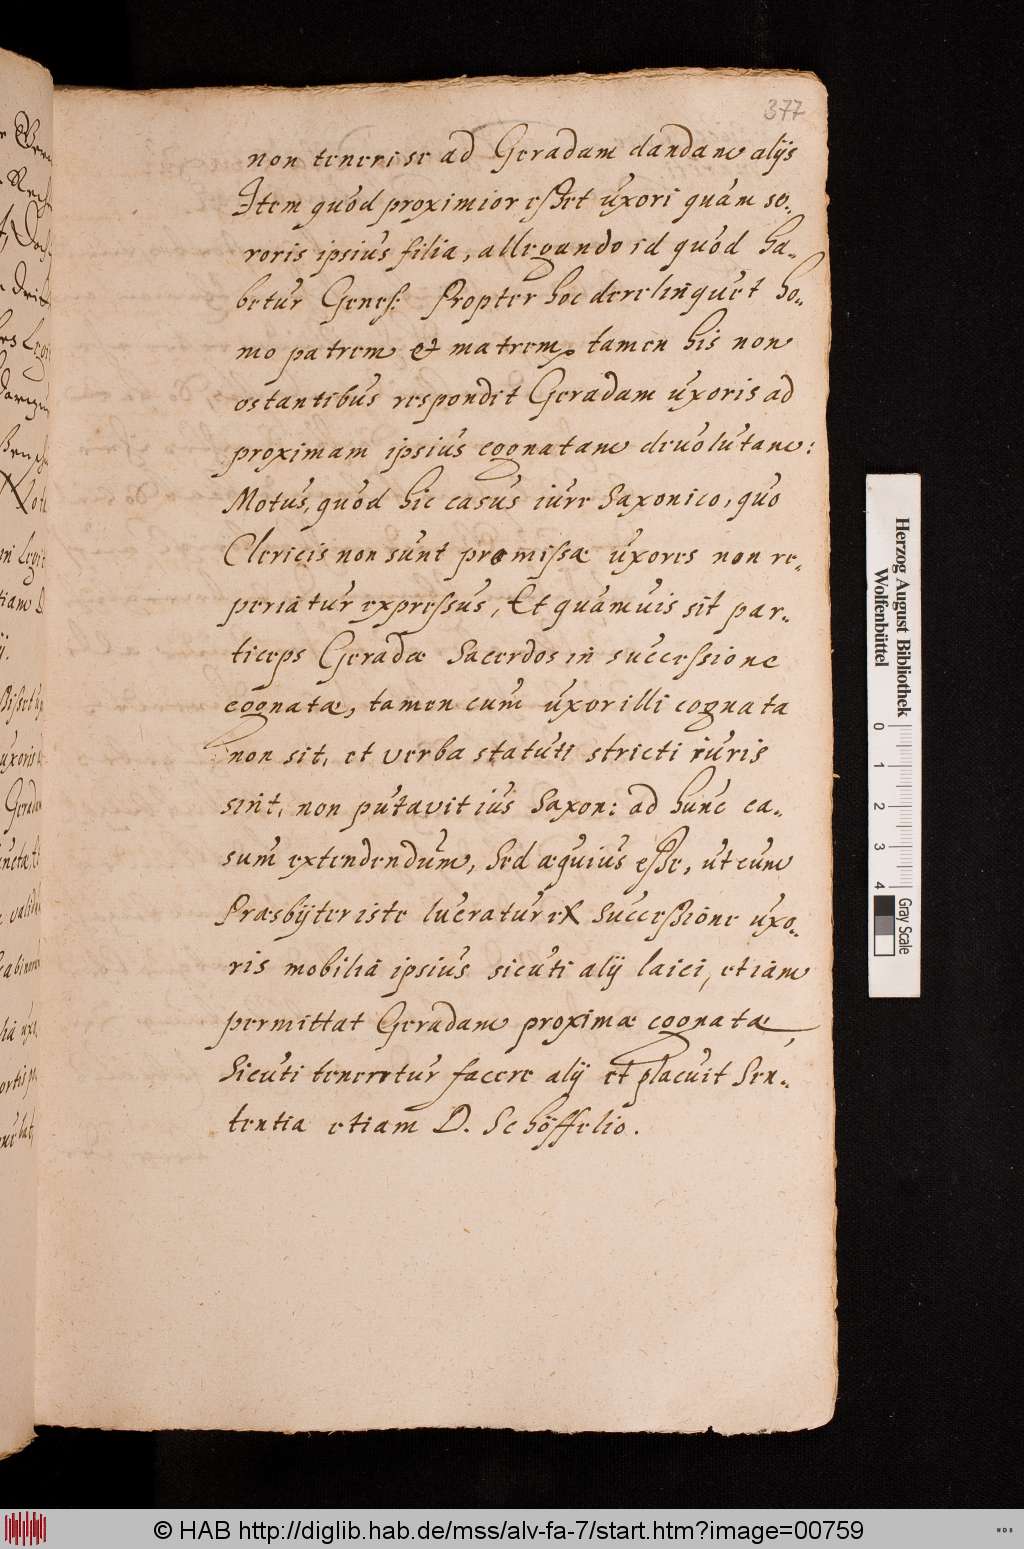 377
non teneri se ad Geradam dandam alijs
Item quod proximior esset uxori quam so-
roris ipsius filia, allegando id quod ha-
betur Genes: Propter hoc derelinquet ho-
mo patrem et matrem, tamen his non
ostantibus respondit Geradam uxoris ad
proximam ipsius cognatam devolutam:
Motus, quod hic casus iure Saxonico, quo
Clericis non sunt promissæ uxores non re-
periatur expressus, Et quamuis sit par-
ticeps Geradæ Sacerdos in successione
cognatæ, tamen cum uxor illi cognata
non sit, et verba statuti stricti iuris
sint, non putavit ius Saxon: ad hunc ca-
sum extendendum, Sed æquius esse, ut cum
Præsbyter iste lucratur ex successione uxo-
ris mobilia ipsius sicuti alij laici, etiam
permittat Geradam proximæ cognatæ,
Sicuti teneretur facere alij et placuit Sen-
tentia etiam D. Schöffelio.
Herzog August Bibliothek
Wolfenbüttel
0 1 2 3 4
Gray Scale
© HAB http://diglib.hab.de/mss/alv-fa-7/start.htm?image=00759